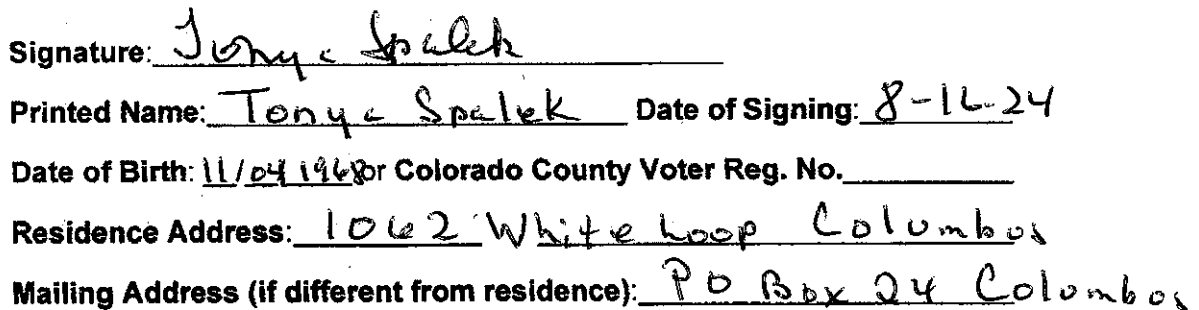 Signature: Tonya Spalek
Printed Name: Tonya Spalek Date of Signing: 8-16-24
Date of Birth: 11/04 1968 or Colorado County Voter Reg. No.
Residence Address: 1062 White Loop Columbus
Mailing Address (if different from residence): PO Box 24 Columbus